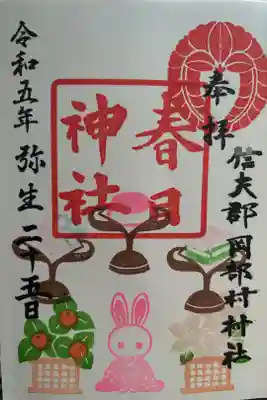 奉拝
信夫郡岡部村村社
春日
神社
令和五年 弥生二十五日